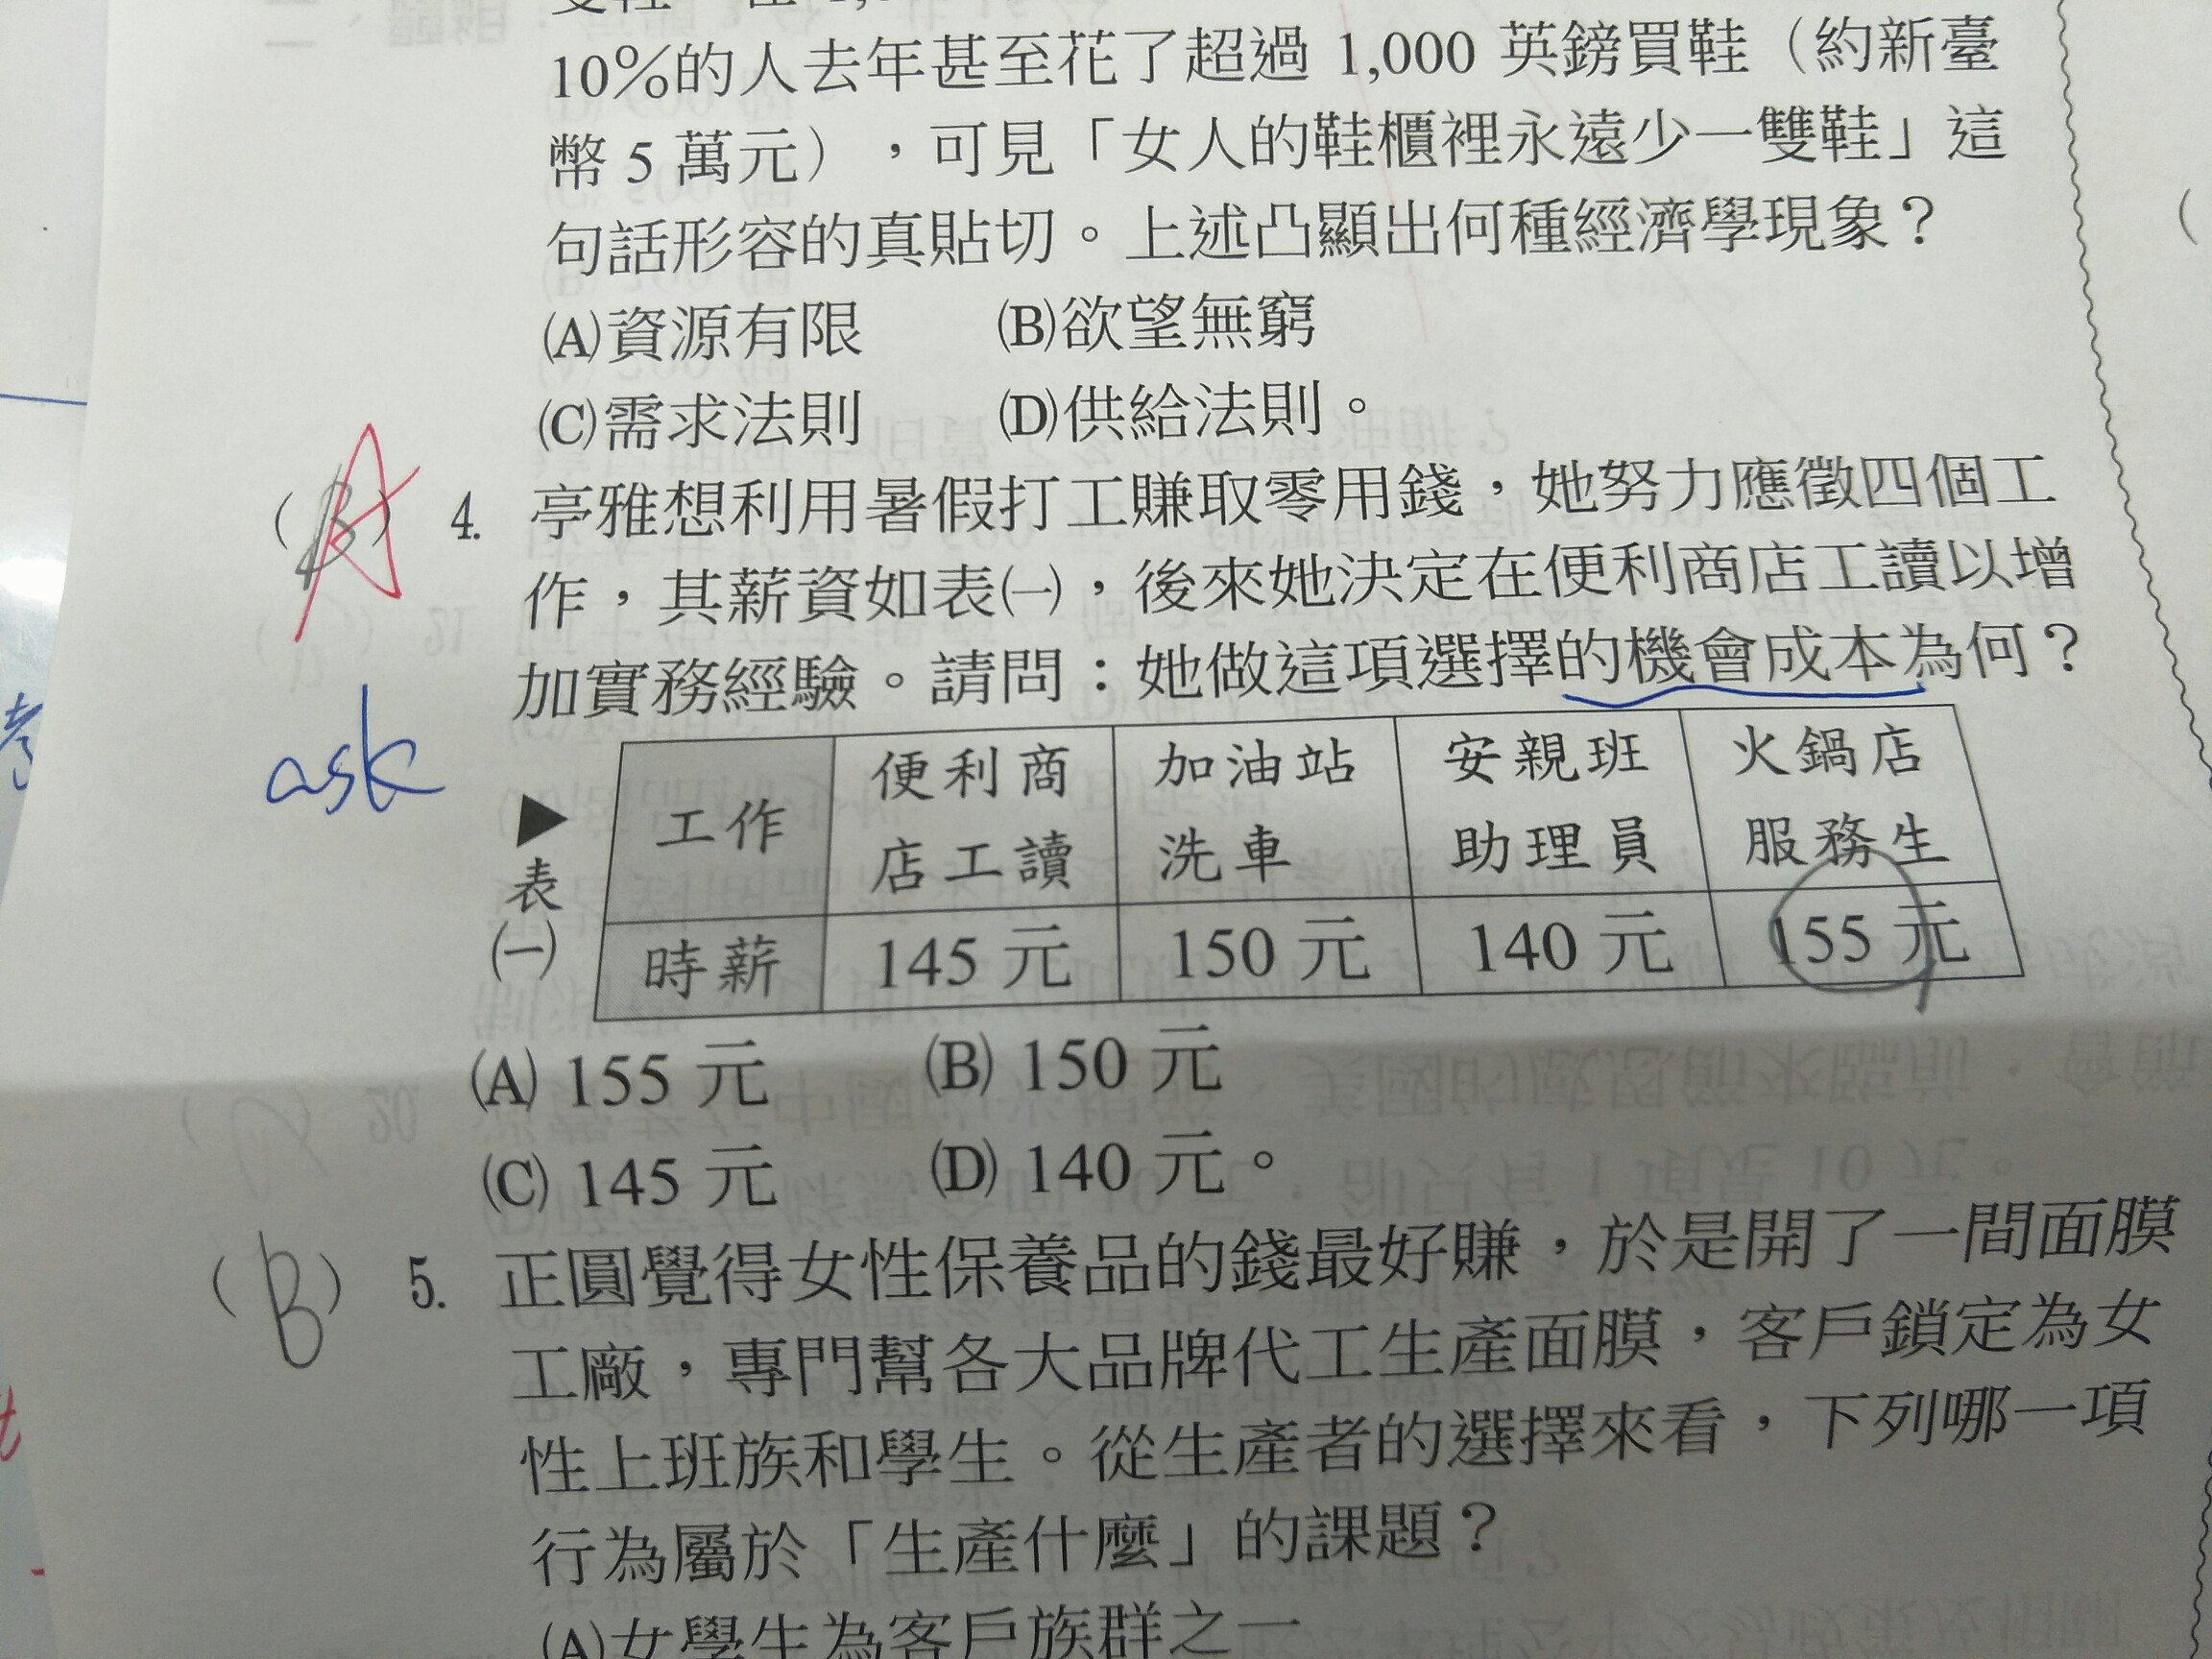 10%的人去年甚至花了超過 1,000 英鎊買鞋（約新臺
幣 5 萬元），可見「女人的鞋櫃裡永遠少一雙鞋」這
句話形容的真貼切。上述凸顯出何種經濟學現象？
(A)資源有限 (B)欲望無窮
(C)需求法則 (D)供給法則。
(B) A 4. 亭雅想利用暑假打工賺取零用錢，她努力應徵四個工
作，其薪資如表㈠，後來她決定在便利商店工讀以增
加實務經驗。請問：她做這項選擇的機會成本為何？
ask
▶表㈠
工作 便利商店工讀 加油站洗車 安親班助理員 火鍋店服務生
時薪 145 元 150 元 140 元 155 元
(A) 155 元 (B) 150 元
(C) 145 元 (D) 140 元。
(B) 5. 正圓覺得女性保養品的錢最好賺，於是開了一間面膜
工廠，專門幫各大品牌代工生產面膜，客戶鎖定為女
性上班族和學生。從生產者的選擇來看，下列哪一項
行為屬於「生產什麼」的課題？
(A)女學生為客戶族群之一